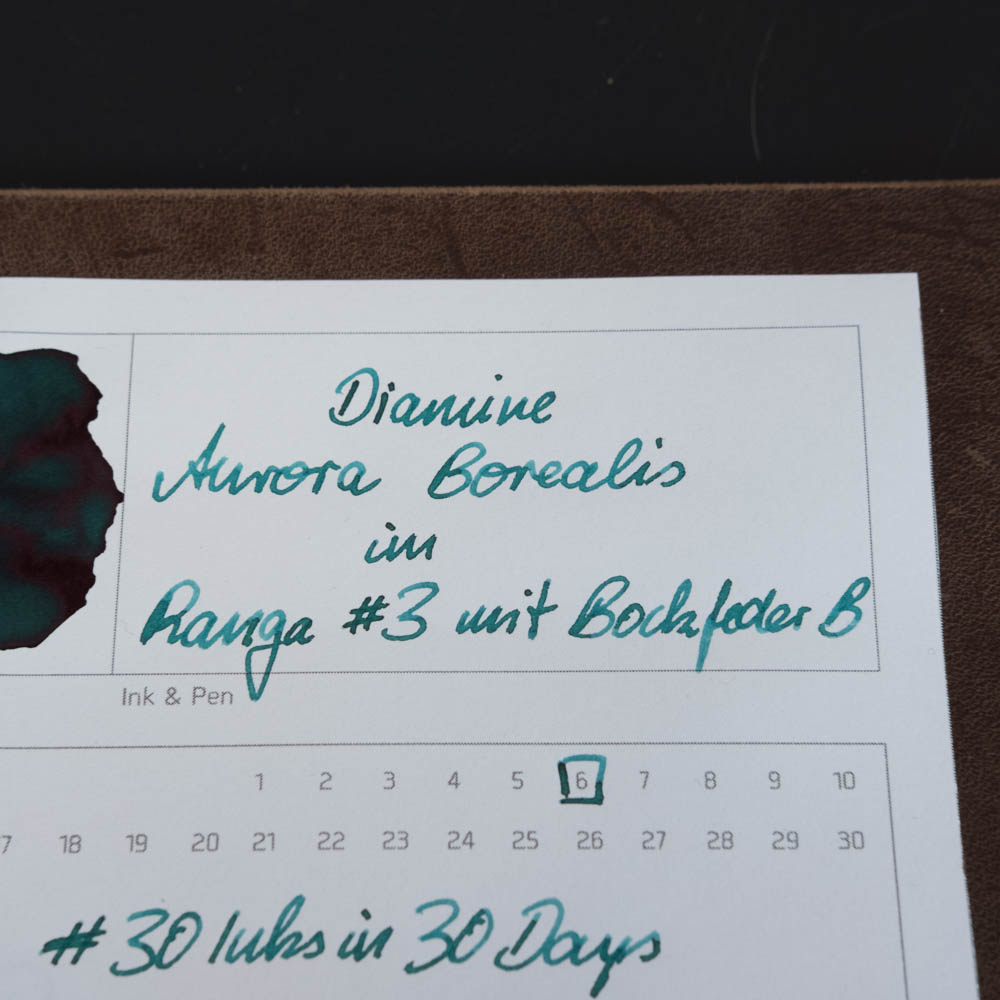 Diamine
Aurora Borealis
im
Ranga #3 mit Bockfeder B
Ink & Pen
1 2 3 4 5 6 7 8 9 10
7 18 19 20 21 22 23 24 25 26 27 28 29 30
# 30 Inks in 30 Days